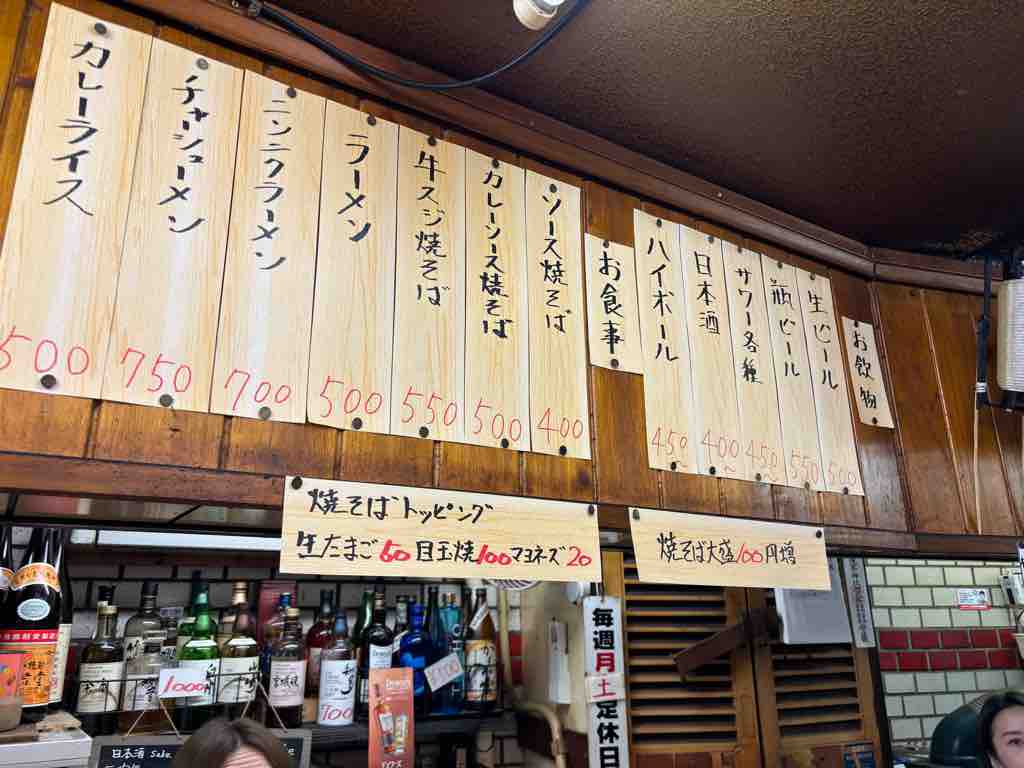 お飲物
生ビール 500
瓶ビール 550
サワー各種 450~
日本酒 400~
ハイボール 450
お食事
ソース焼そば 400
カレーソース焼そば 500
牛スジ焼そば 550
ラーメン 500
ニンニクラーメン 700
チャーシューメン 750
カレーライス 500
焼そばトッピング
生たまご50 目玉焼100 マヨネーズ20
焼そば大盛100円増
毎週月土定休日
1000
700
日本酒 Sake